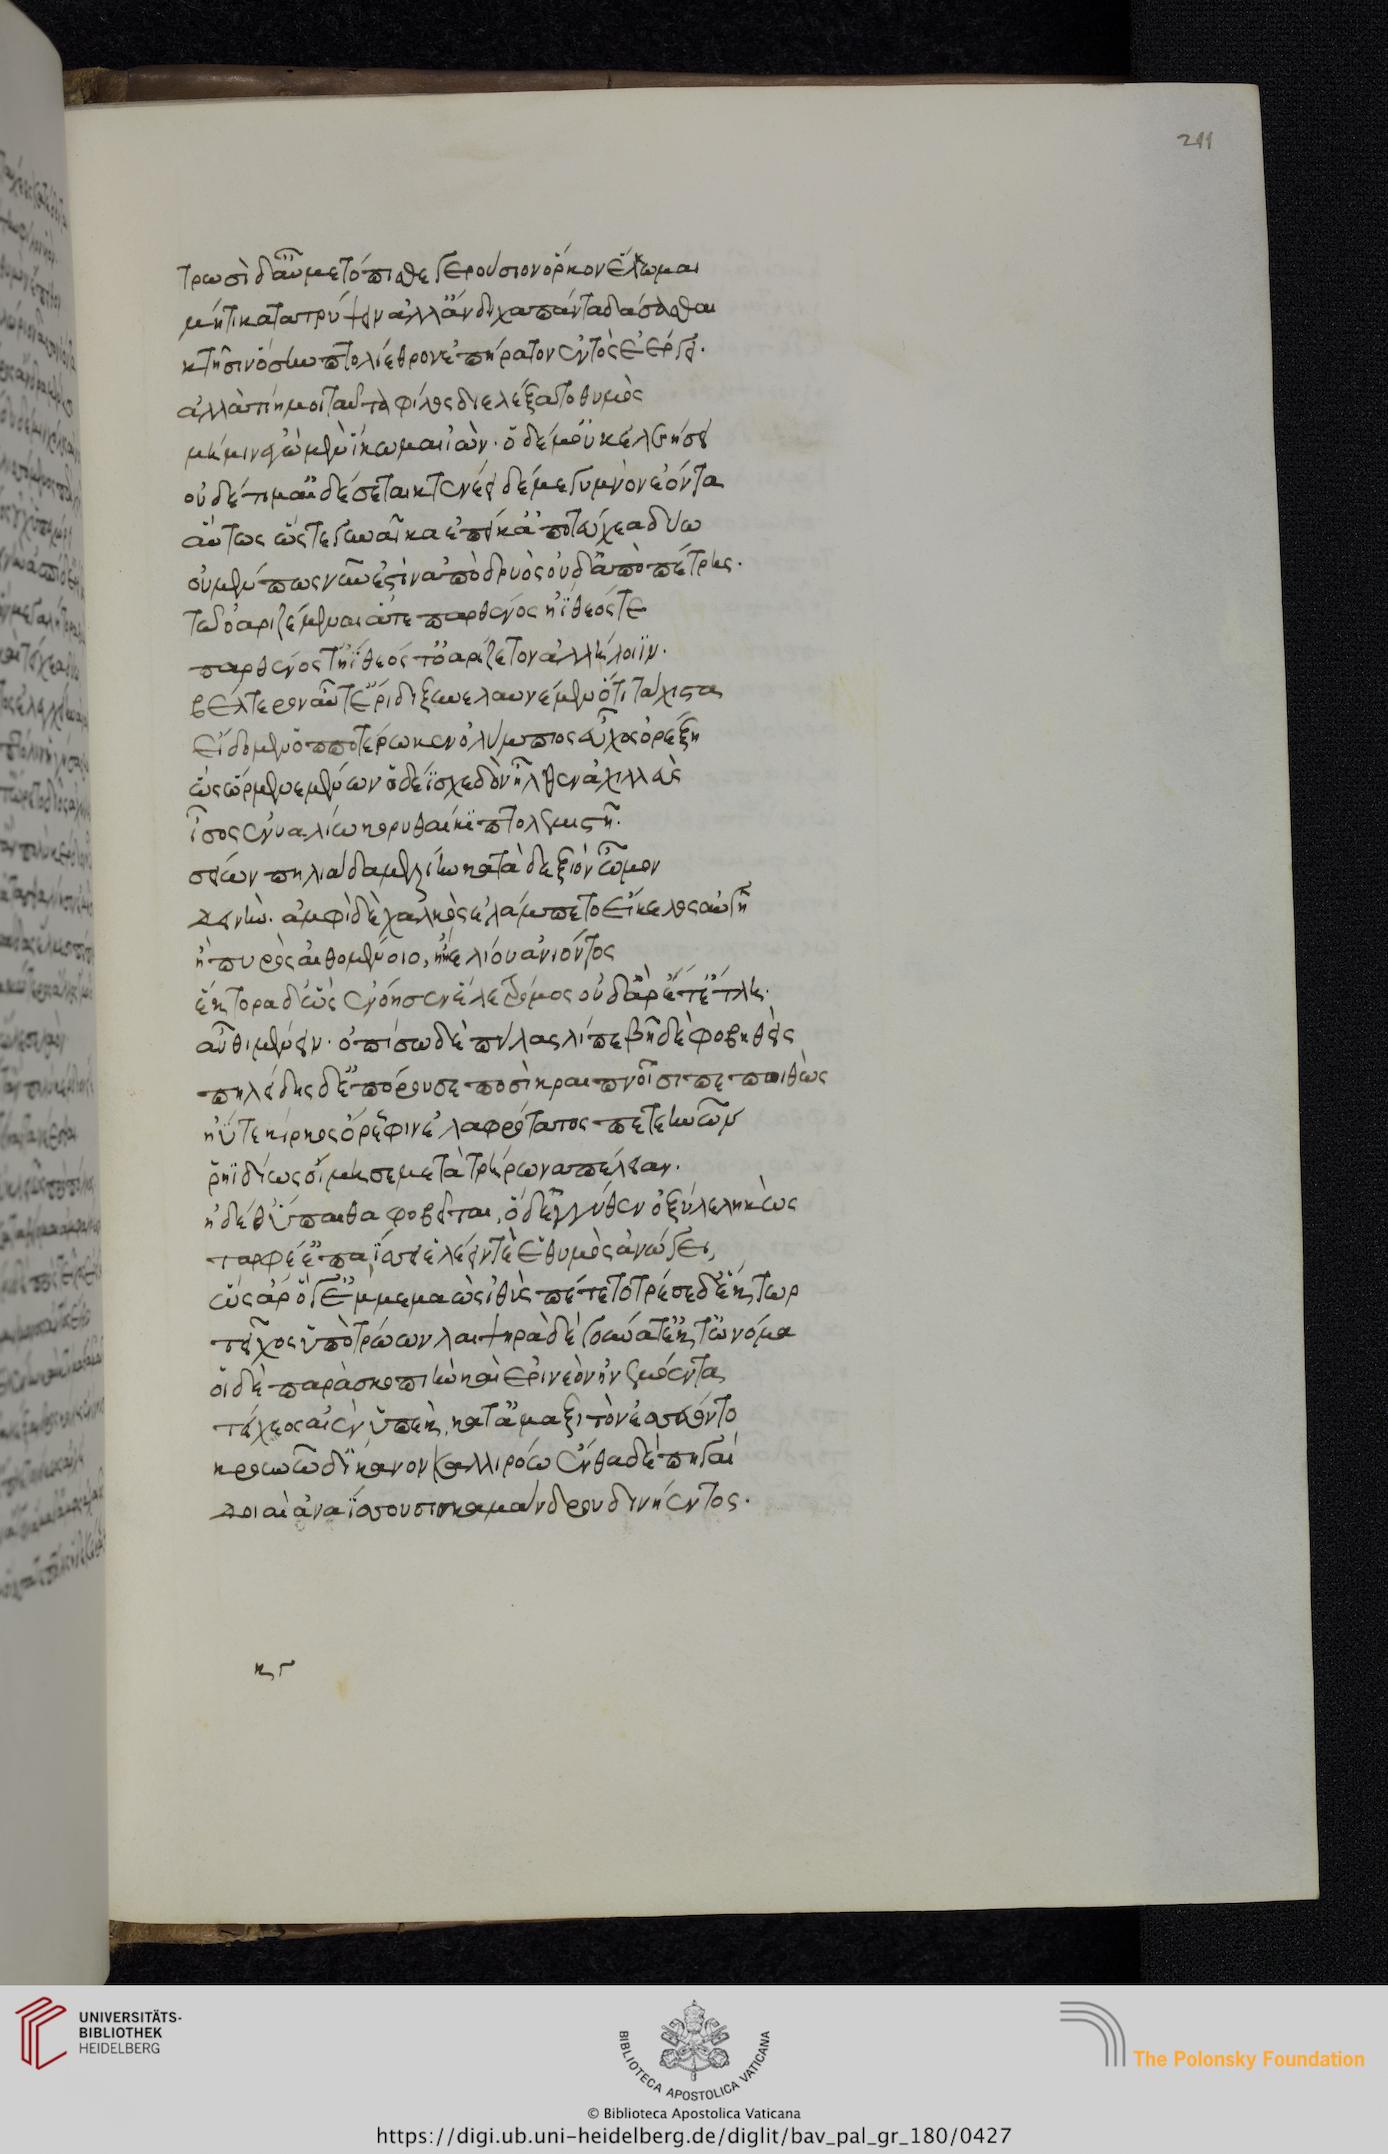 211
τρωσὶ δ' αὖ μετόπισθε γερούσιον ὅρκον ἕλωμαι
μήτι κατακρύψειν ἀλλ' ἄνδιχα πάντα δάσασθαι
κτῆσιν ὅσην πτολίεθρον ἐπήρατον ἐντὸς ἐέργει.
ἀλλὰ τίη μοι ταῦτα φίλος διελέξατο θυμὸς
μή μιν ἐγὼ μὲν ἵκωμαι ἰών. ὅ δέ μ' οὐκ ἐλεήσει
οὐδέ τί μ' αἰδέσεται κτενέει δέ με γυμνὸν ἐόντα
αὔτως ὥς τε γυναῖκα ἐπεί κ' ἀπὸ τεύχεα δύω
οὐ μέν πως νῦν ἐστὶν ἀπὸ δρυὸς οὐδ' ἀπὸ πέτρης.
τῷ ὀαριζέμεναι ἅτε παρθένος ἠΐθεός τε
παρθένος τ' ἠΐθεός τ' ὀαρίζετον ἀλλήλοιϊν.
βέλτερον αὖτ' ἔριδι ξυνελαυνέμεν ὅτι τάχιστα
εἴδομεν ὁπποτέρω κεν ὀλύμπιος εὖχος ὀρέξη
ὣς ὥρμαινε μένων ὃ δέ οἱ σχεδὸν ἦλθεν ἀχιλλεὺς
ἶσος ἐνυαλίω κορυθάϊκι πτολεμιστῆ.
σείων πηλιάδα μελίην κατὰ δεξιὸν ὦμον
δεινήν. ἀμφὶ δὲ χαλκὸς ἐλάμπετο εἴκελος αὐγῆ
ἢ πυρὸς αἰθομένοιο, ἢ ἠελίου ἀνιόντος
ἕκτορα δ' ὡς ἐνόησεν ἕλε τρόμος οὐδ' ἄρ' ἔτ' ἔτλη.
αὖθι μένειν. ὀπίσω δὲ πύλας λίπε βῆ δὲ φοβηθείς
πηλείδης δ' ἐπόρουσε ποσὶ κραιπνοῖσι πεποιθὼς
ἠΰτε κίρκος ὄρεσφιν ἐλαφρότατος πετεηνῶν
ῥηϊδίως οἴμησε μετὰ τρήρωνα πέλειαν.
ἡ δέ θ' ὕπαιθα φοβεῖται, ὅ δ' ἐγγύθεν ὀξὺ λεληκὼς
ταρφέ' ἐπαΐσσει ἑλέειν τέ ἑ θυμὸς ἀνώγει,
ὣς ἄρ' ὅ γ' ἐμμεμαὼς ἰθὺς πέτετο τρέσε δ' ἕκτωρ
τεῖχος ὕπο τρώων λαιψηρὰ δὲ γούνατ' ἐνώμα
οἱ δὲ παρὰ σκοπιὴν καὶ ἐρινεὸν ἠνεμόεντα
τείχεος αἰὲν ὑπὲκ κατ' ἄμαξιτὸν ἐσσεύοντο
κρουνὼ δ' ἵκανον καλλιρόω ἔνθα δὲ πηγαί
δοιαὶ ἀναΐσσουσι σκαμάνδρου δινήεντος.
UNIVERSITÄTS-
BIBLIOTHEK
HEIDELBERG
BIBLIOTECA APOSTOLICA VATICANA
The Polonsky Foundation
© Biblioteca Apostolica Vaticana
https://digi.ub.uni-heidelberg.de/diglit/bav_pal_gr_180/0427